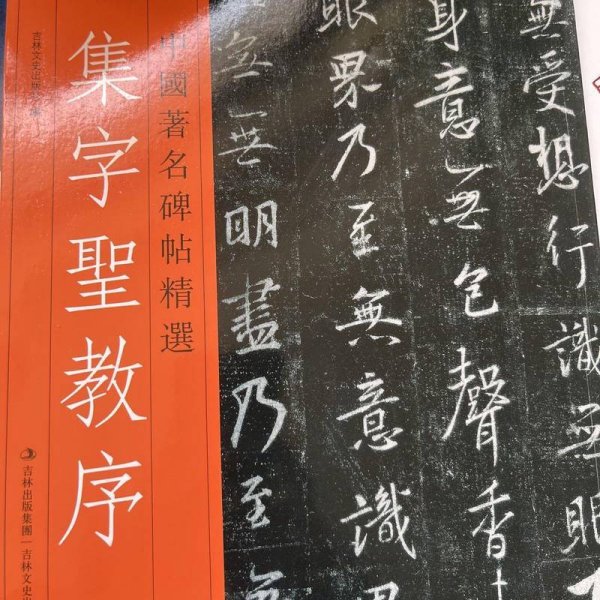 無受想行識無眼
身意無色聲香
眼界乃至無意識
無無明盡乃至無
中國著名碑帖精選
集字聖教序
吉林文史出版社
吉林出版集團 吉林文史出